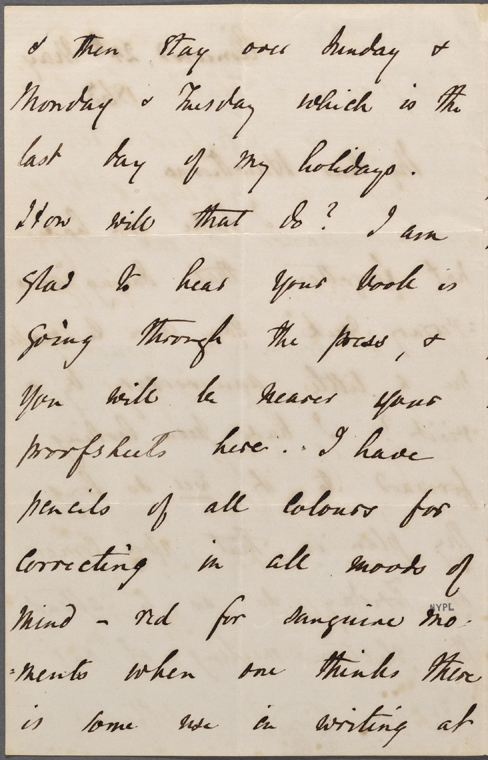 & then stay over Sunday &
Monday & Tuesday which is the
last day of my holidays.
How will that do? I am
glad to hear your book is
going through the press, &
you will be nearer your
proofsheets here. I have
pencils of all colours for
correcting in all moods of
mind - red for sanguine mo-
NYPL
-ments when one thinks there
is some use in writing at